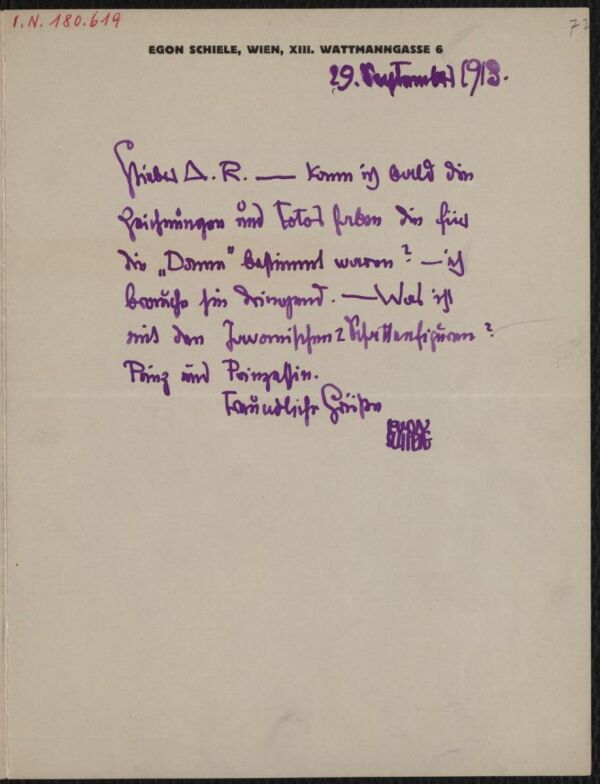 I.N. 180.619
EGON SCHIELE, WIEN, XIII. WATTMANNGASSE 6
29. September 1918.
Lieber A. R. — kann ich bald die
Zeichnungen und Fotos haben die für
die „Dame“ bestimmt waren? — ich
brauche sie dringend. — Was ist
mit den Javanischen 2 Schattenfiguren?
Prinz und Prinzessin.
Freundliche Grüße
EGON
SCHIELE